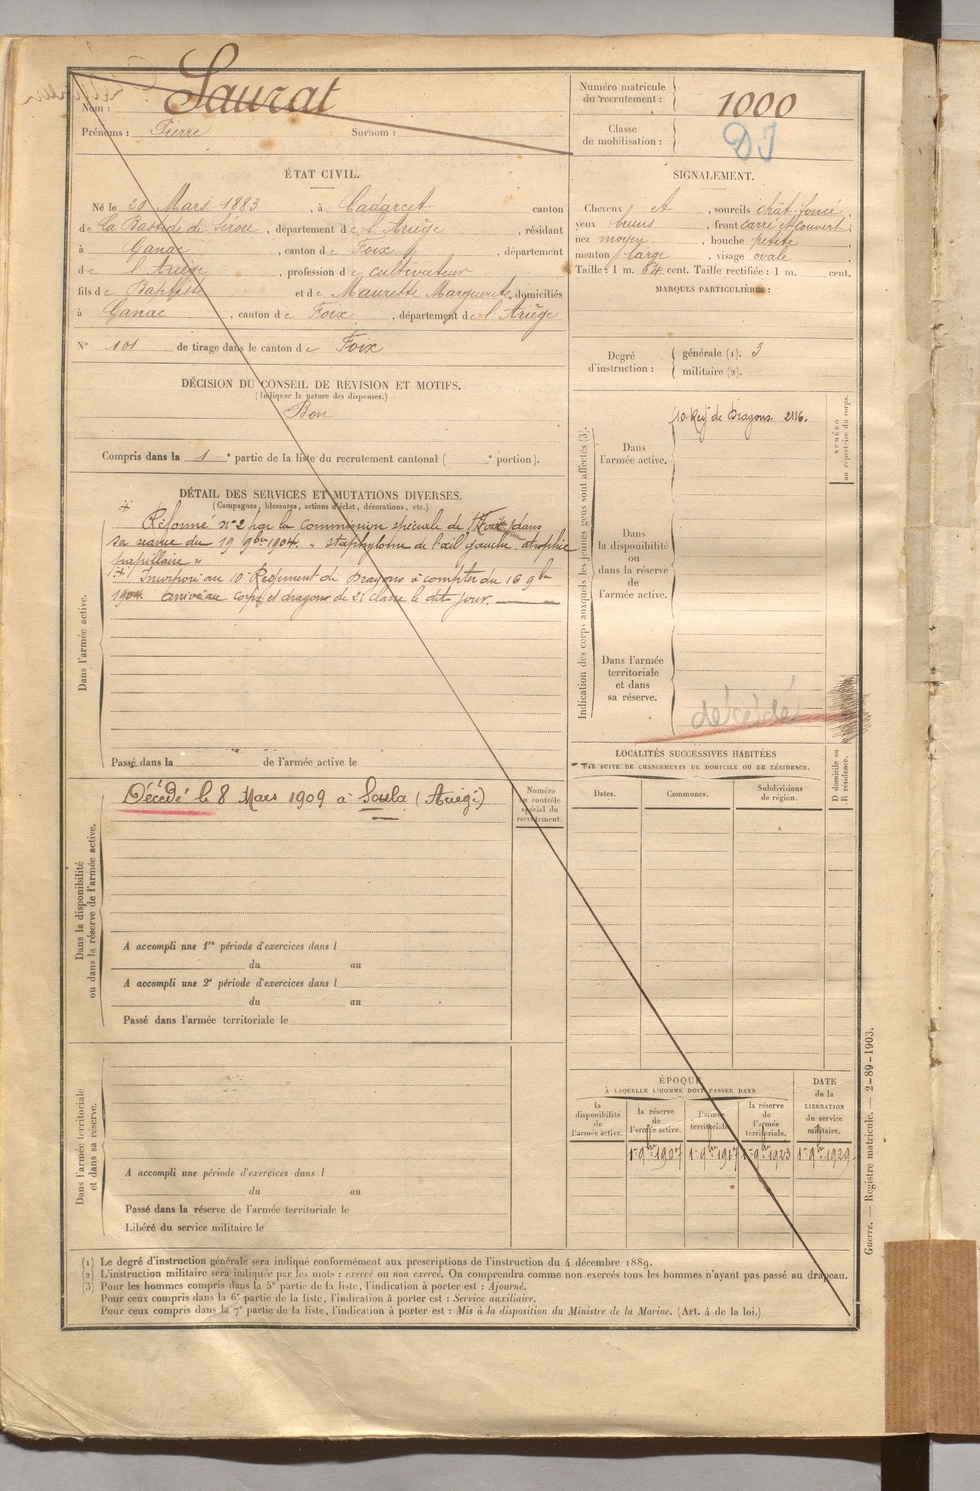 Nom : Saurat
Prénoms : Pierre Surnom :
Numéro matricule du recrutement : 1000
Classe de mobilisation :
DI
ÉTAT CIVIL.
Né le 20 Mars 1883, à Cadarcet canton
de La Bastide de Sérou, département de l'Ariège, résidant
à Ganac, canton de Foix, département
de l'Ariège, profession de cultivateur
fils de Baptiste et de Maurette Marguerite, domiciliés
à Ganac, canton de Foix, département de l'Ariège
N° 101 de tirage dans le canton de Foix
SIGNALEMENT.
Cheveux et, sourcils chât. foncé,
yeux bruns, front carré et couvert,
nez moyen, bouche petite,
menton large, visage ovale.
Taille : 1 m. 64 cent. Taille rectifiée : 1 m. cent.
MARQUES PARTICULIÈRES :
Degré d'instruction :
générale (1). 3
militaire (2).
DÉCISION DU CONSEIL DE REVISION ET MOTIFS.
(Indiquer la nature des dispenses.)
Bon
Compris dans la 1e partie de la liste du recrutement cantonal ( e portion).
DÉTAIL DES SERVICES ET MUTATIONS DIVERSES.
(Campagnes, blessures, actions d'éclat, décorations, etc.)
Réformé n° 2 par la commission spéciale de Foix dans
sa séance du 19 9bre 1904. « staphylome de l'œil gauche atrophie
papillaire »
Incorporé au 10e Régiment de Dragons à compter du 16 9bre
1904. Arrivé au corps et dragons de 2e classe le dit jour.
Dans l'armée active.
Passé dans la de l'armée active le
Indication des corps auxquels les jeunes gens sont affectés (3).
Dans l'armée active.
10. Reg de Dragons. 2116.
NUMÉRO au répertoire du corps.
Dans la disponibilité ou dans la réserve de l'armée active.
Dans l'armée territoriale et dans sa réserve.
décédé
Dans la disponibilité ou dans la réserve de l'armée active.
Décédé le 8 Mars 1909 à Soula (Ariège)
Numéro au contrôle spécial du recrutement.
A accompli une 1re période d'exercices dans l
du au
A accompli une 2e période d'exercices dans l
du au
Passé dans l'armée territoriale le
LOCALITÉS SUCCESSIVES HABITÉES
PAR SUITE DE CHANGEMENTS DE DOMICILE OU DE RÉSIDENCE.
Dates. Communes. Subdivisions de région. D domicile ou R résidence.
Dans l'armée territoriale et dans sa réserve.
A accompli une période d'exercices dans l
du au
Passé dans la réserve de l'armée territoriale le
Libéré du service militaire le
ÉPOQUE
À LAQUELLE L'HOMME DOIT PASSER DANS
la disponibilité de l'armée active.
la réserve de l'armée active.
l'armée territoriale.
la réserve de l'armée territoriale.
DATE de la LIBÉRATION du service militaire.
1er 9bre 1907 1er 9bre 1917 1er 9bre 1923 1er 9bre 1929
(1) Le degré d'instruction générale sera indiqué conformément aux prescriptions de l'instruction du 4 décembre 1889.
(2) L'instruction militaire sera indiquée par les mots : exercé ou non exercé. On comprendra comme non exercés tous les hommes n'ayant pas passé au drapeau.
(3) Pour les hommes compris dans la 5e partie de la liste, l'indication à porter est : Ajourné.
Pour ceux compris dans la 6e partie de la liste, l'indication à porter est : Service auxiliaire.
Pour ceux compris dans la 7e partie de la liste, l'indication à porter est : Mis à la disposition du Ministre de la Marine. (Art. 4 de la loi.)
Guerre. — Registre matricule. — 2-89-1903.